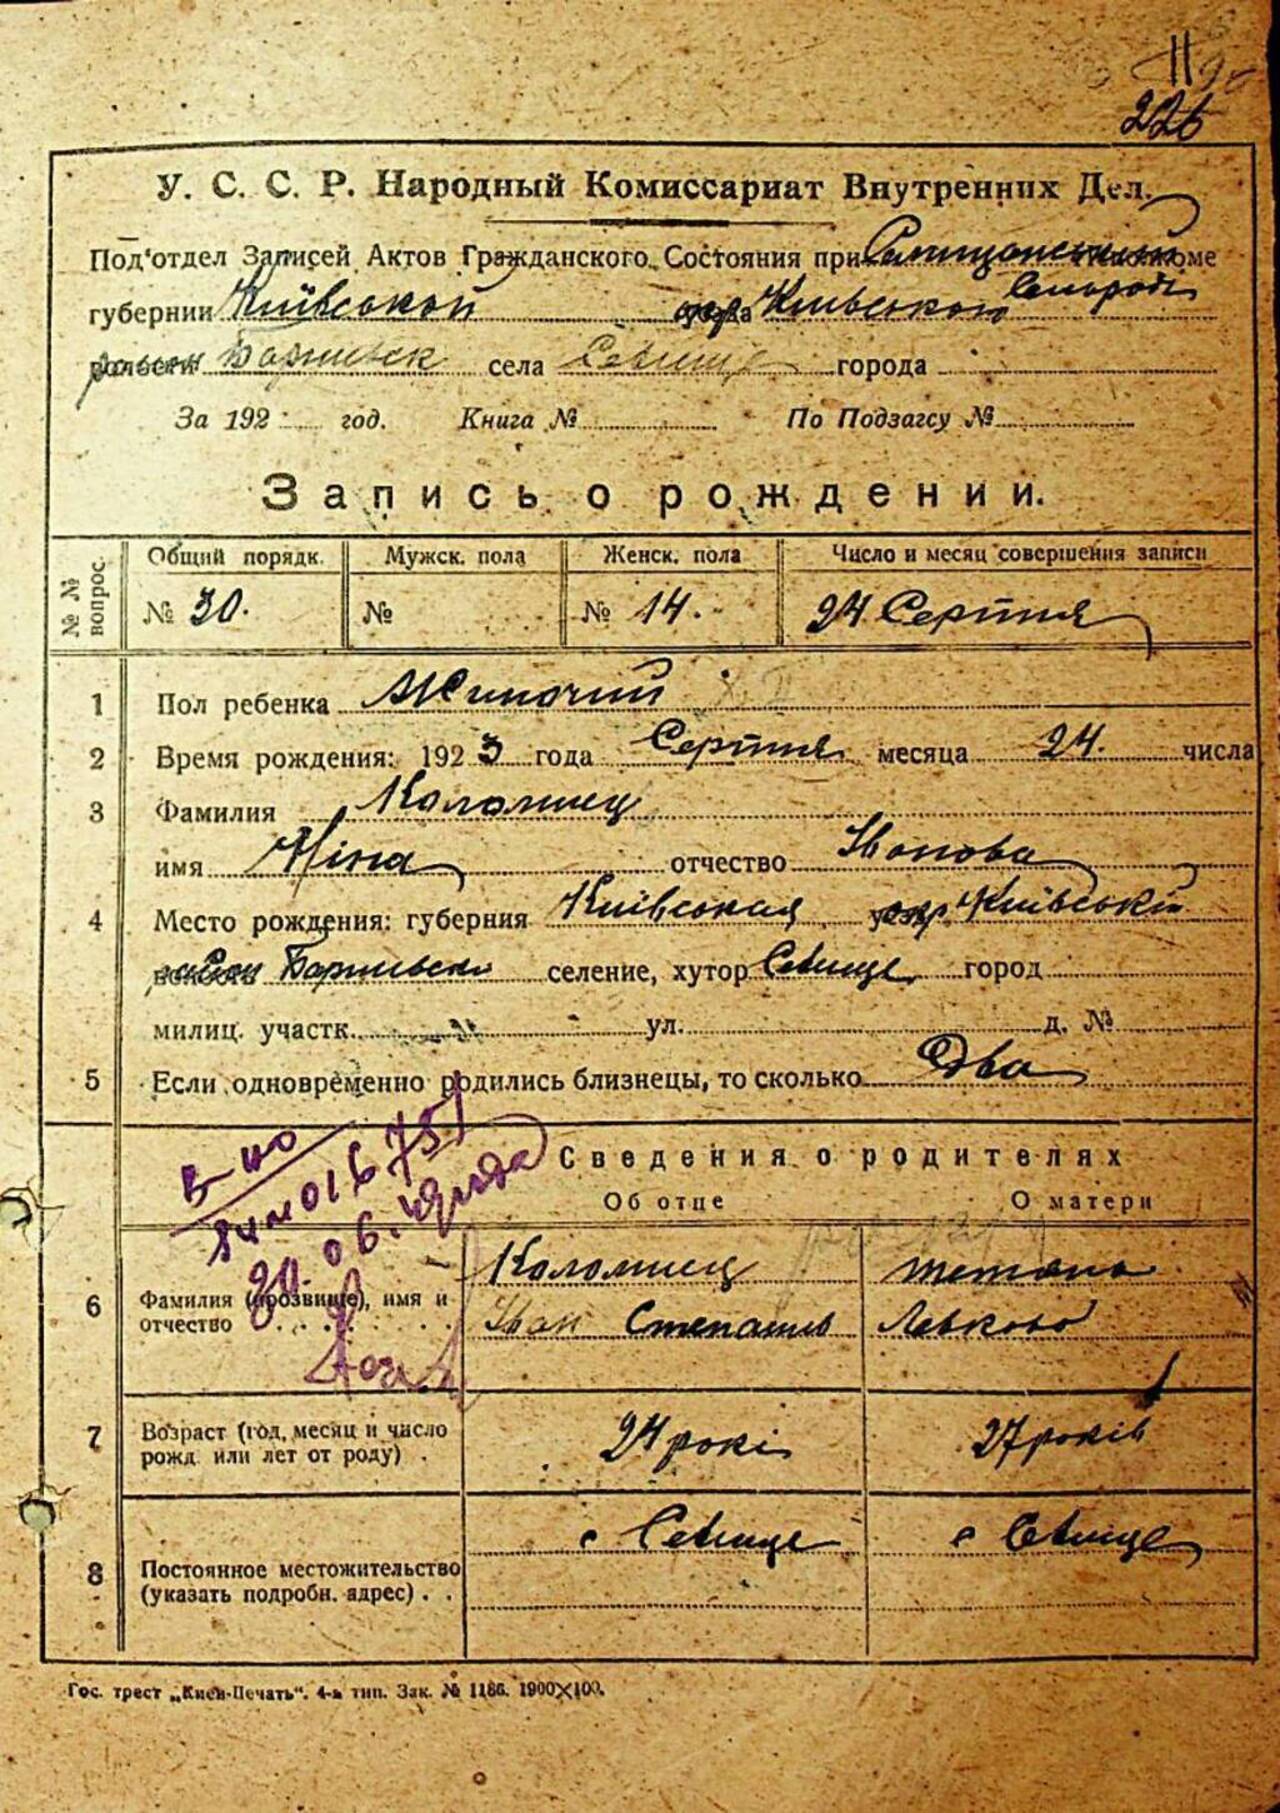 226
У. С. С. Р. Народный Комиссариат Внутренних Дел.
Под'отдел Записей Актов Гражданского Состояния при
губернии Київськой Київського
села Севище города
За 192 год. Книга № По Подзагсу №
Запись о рождении.
№ № вопрос.
Общий порядк. Мужск. пола Женск. пола Число и месяц совершения записи
№ 30. № № 14. 24 Серпня
1 Пол ребенка Жиночий
2 Время рождения: 1923 года Серпня месяца 24. числа
3 Фамилия Коломиец
имя Ніна отчество Іванова
4 Место рождения: губерния Київськая окр Київській
район селение, хутор Севище город
милиц. участк. ул. д. №
5 Если одновременно родились близнецы, то сколько Два
Сведения о родителях
Об отце О матери
6 Фамилия (прозвище), имя и отчество
Коломиец Тетяна
Іван Степанів Левкова
7 Возраст (год, месяц и число рожд. или лет от роду) 24 років 27 років
8 Постоянное местожительство (указать подробн. адрес) с Севище с Севище
Гос. трест „Киев-Печать". 4-я тип. Зак. № 1186. 1900×100.